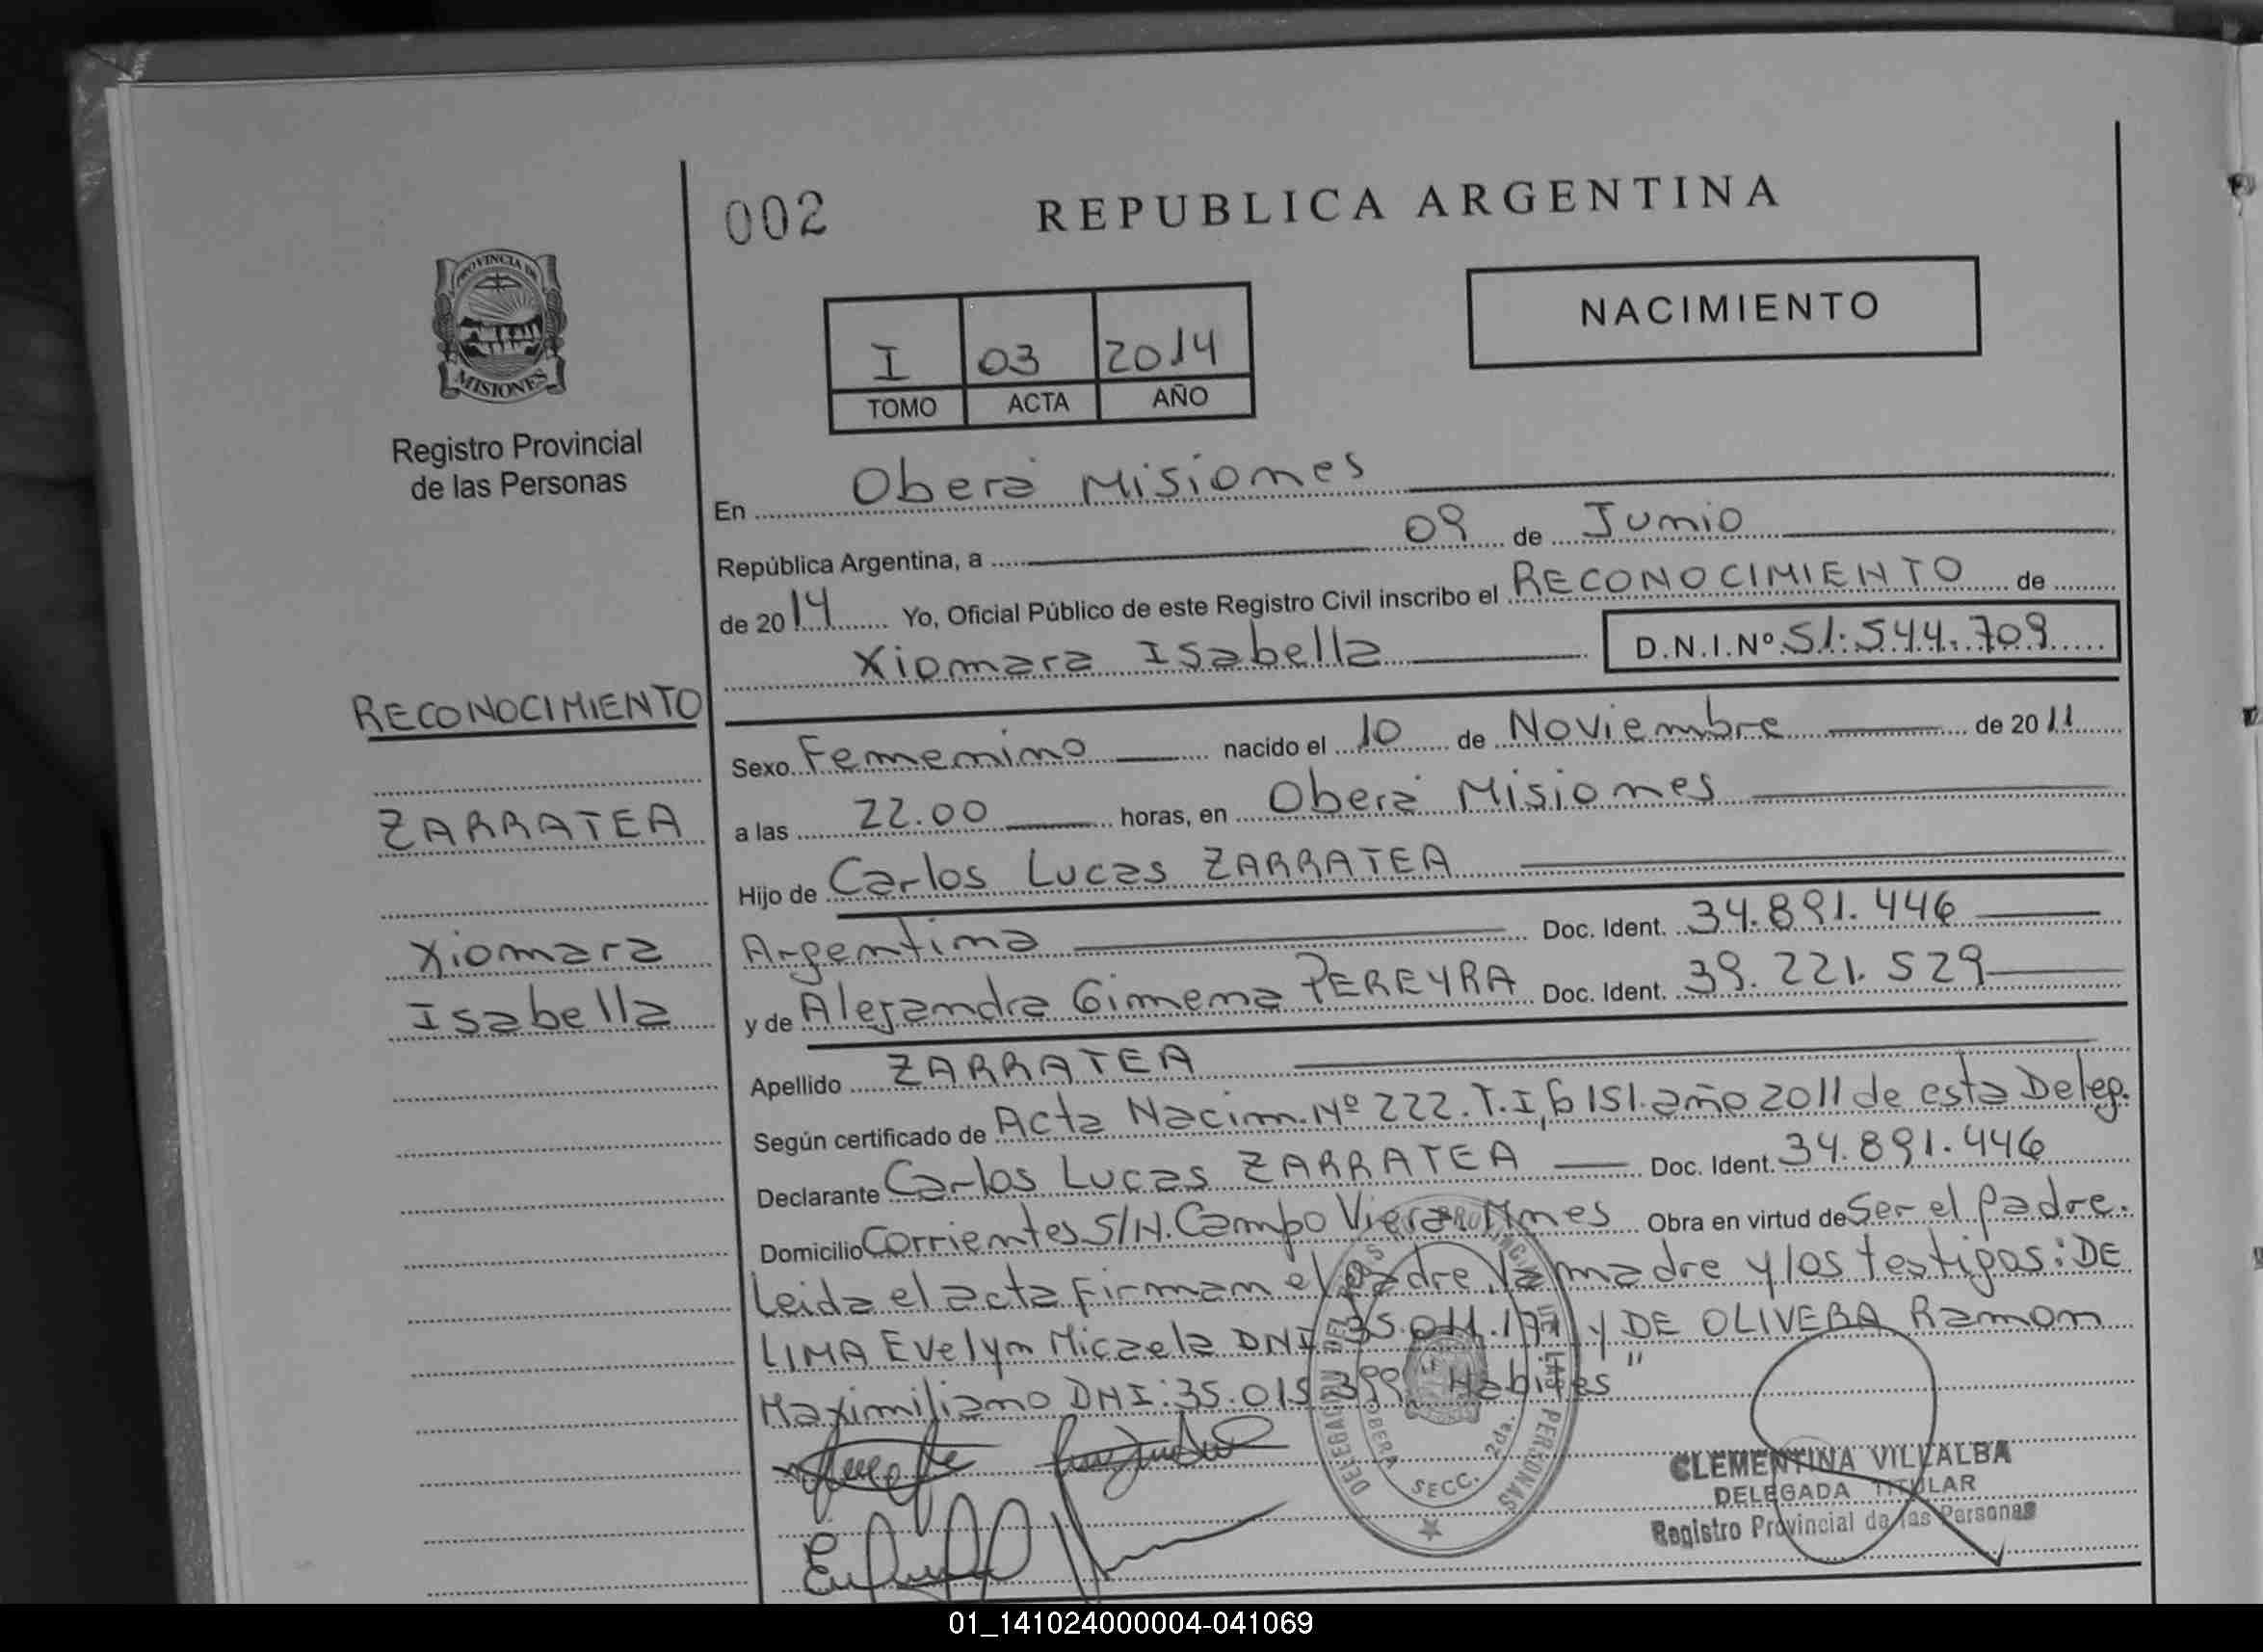 002
REPUBLICA ARGENTINA
PROVINCIA DE
MISIONES
NACIMIENTO
I 03 2014
TOMO ACTA AÑO
Registro Provincial
de las Personas
En Oberá Misiones
República Argentina, a 09 de Junio
de 2014 Yo, Oficial Público de este Registro Civil inscribo el RECONOCIMIENTO de
Xiomara Isabella D.N.I.Nº 51.544.709
RECONOCIMIENTO
Sexo Femenino nacido el 10 de Noviembre de 2011
ZARRATEA
a las 22.00 horas, en Oberá Misiones
Hijo de Carlos Lucas ZARRATEA
Xiomara
Isabella
Argentina Doc. Ident. 34.891.446
y de Alejandra Gimena PEREYRA Doc. Ident. 39.221.529
Apellido ZARRATEA
Según certificado de Acta Nacim. Nº 222. T.I, 151. año 2011 de esta Deleg.
Declarante Carlos Lucas ZARRATEA Doc. Ident. 34.891.446
Domicilio Corrientes S/N. Campo Viera Mnes Obra en virtud de Ser el padre.
Leida el acta firman el padre, la madre y los testigos: DE
LIMA Evelyn Micaela DNI 35.011. y DE OLIVERA Ramon
Maximiliano DNI: 35.015.399 "Habiles"
DELEGACION DEL PERSONAS
OBERA
SECC. 2da.
CLEMENTINA VILLALBA
DELEGADA TITULAR
Registro Provincial de las Personas
01_141024000004-041069